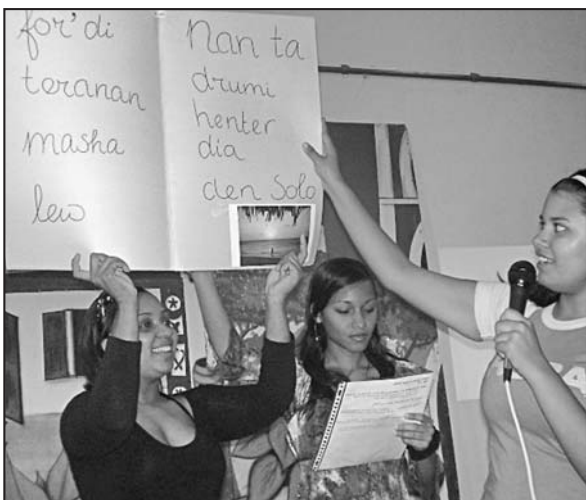 for' di
teranan
masha
lew
Nan ta
drumi
henter
dia
den Solo